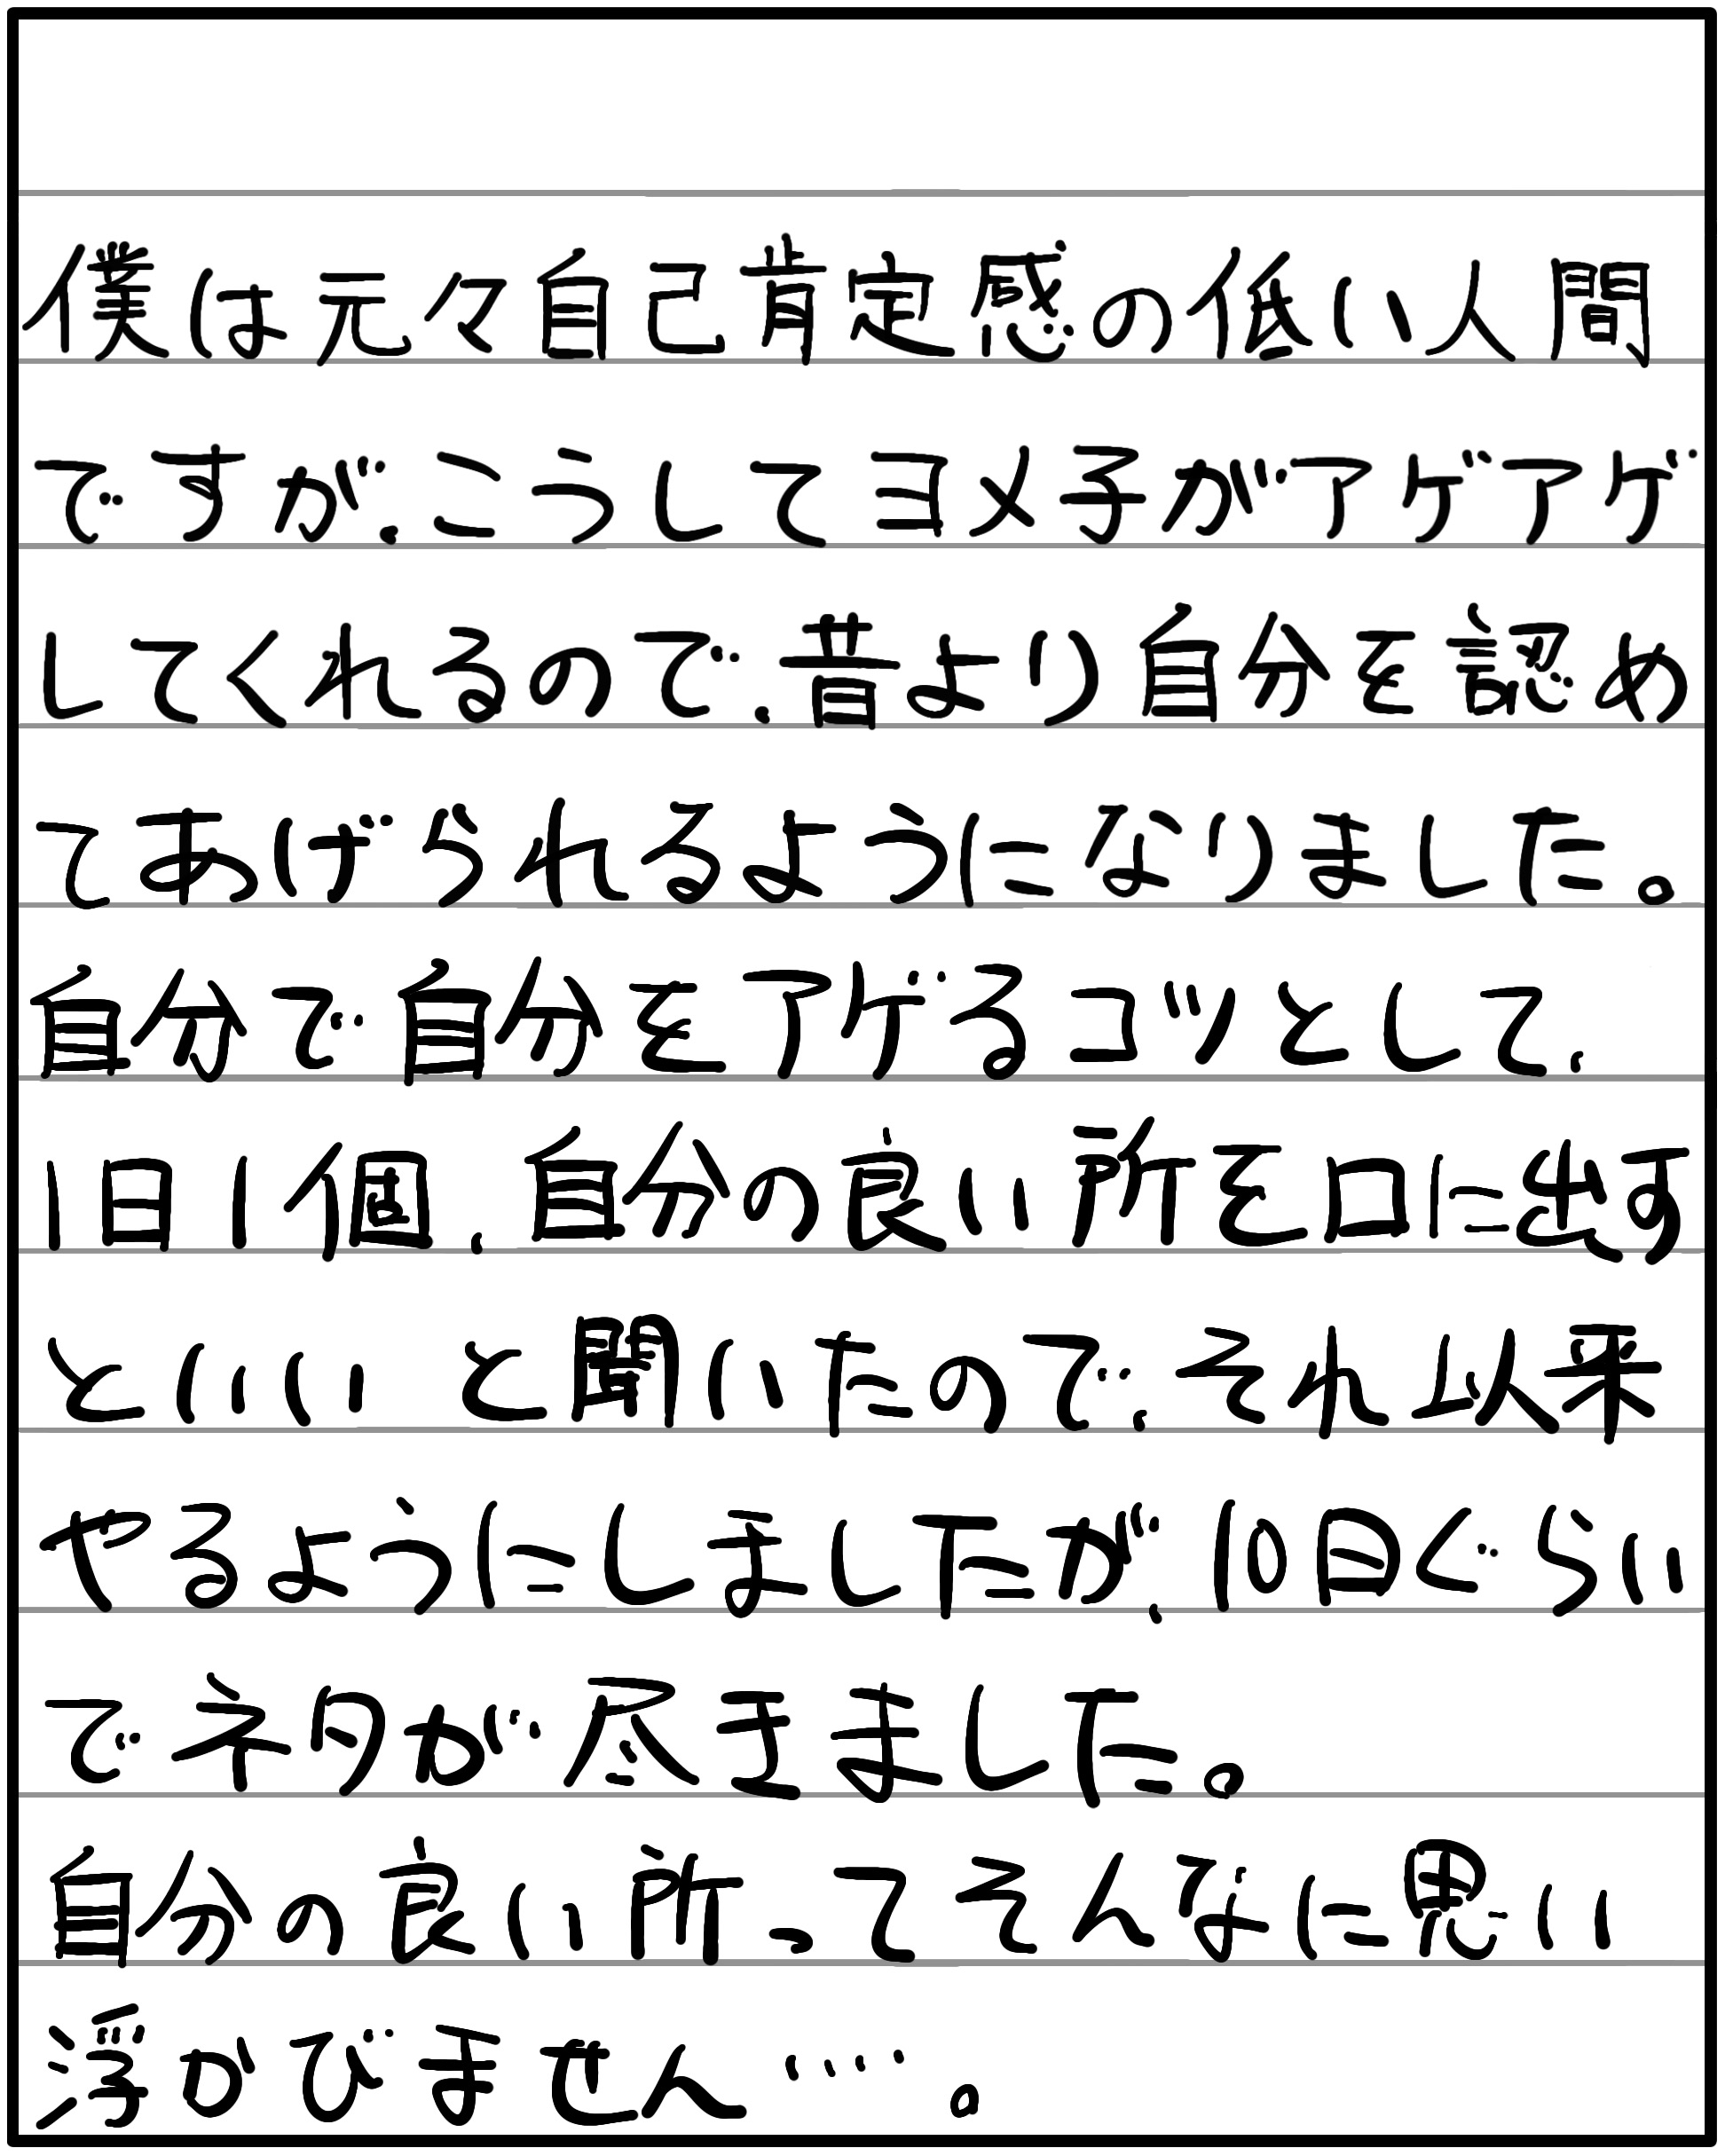 僕は元々自己肯定感の低い人間
ですが、こうしてヨメ子がアゲアゲ
してくれるので、昔より自分を認め
てあげられるようになりました。
自分で自分をアゲるコツとして、
1日1個、自分の良い所を口に出す
といいと聞いたので、それ以来
やるようにしましたが、10日ぐらい
でネタが尽きました。
自分の良い所ってそんなに思い
浮かびません….。